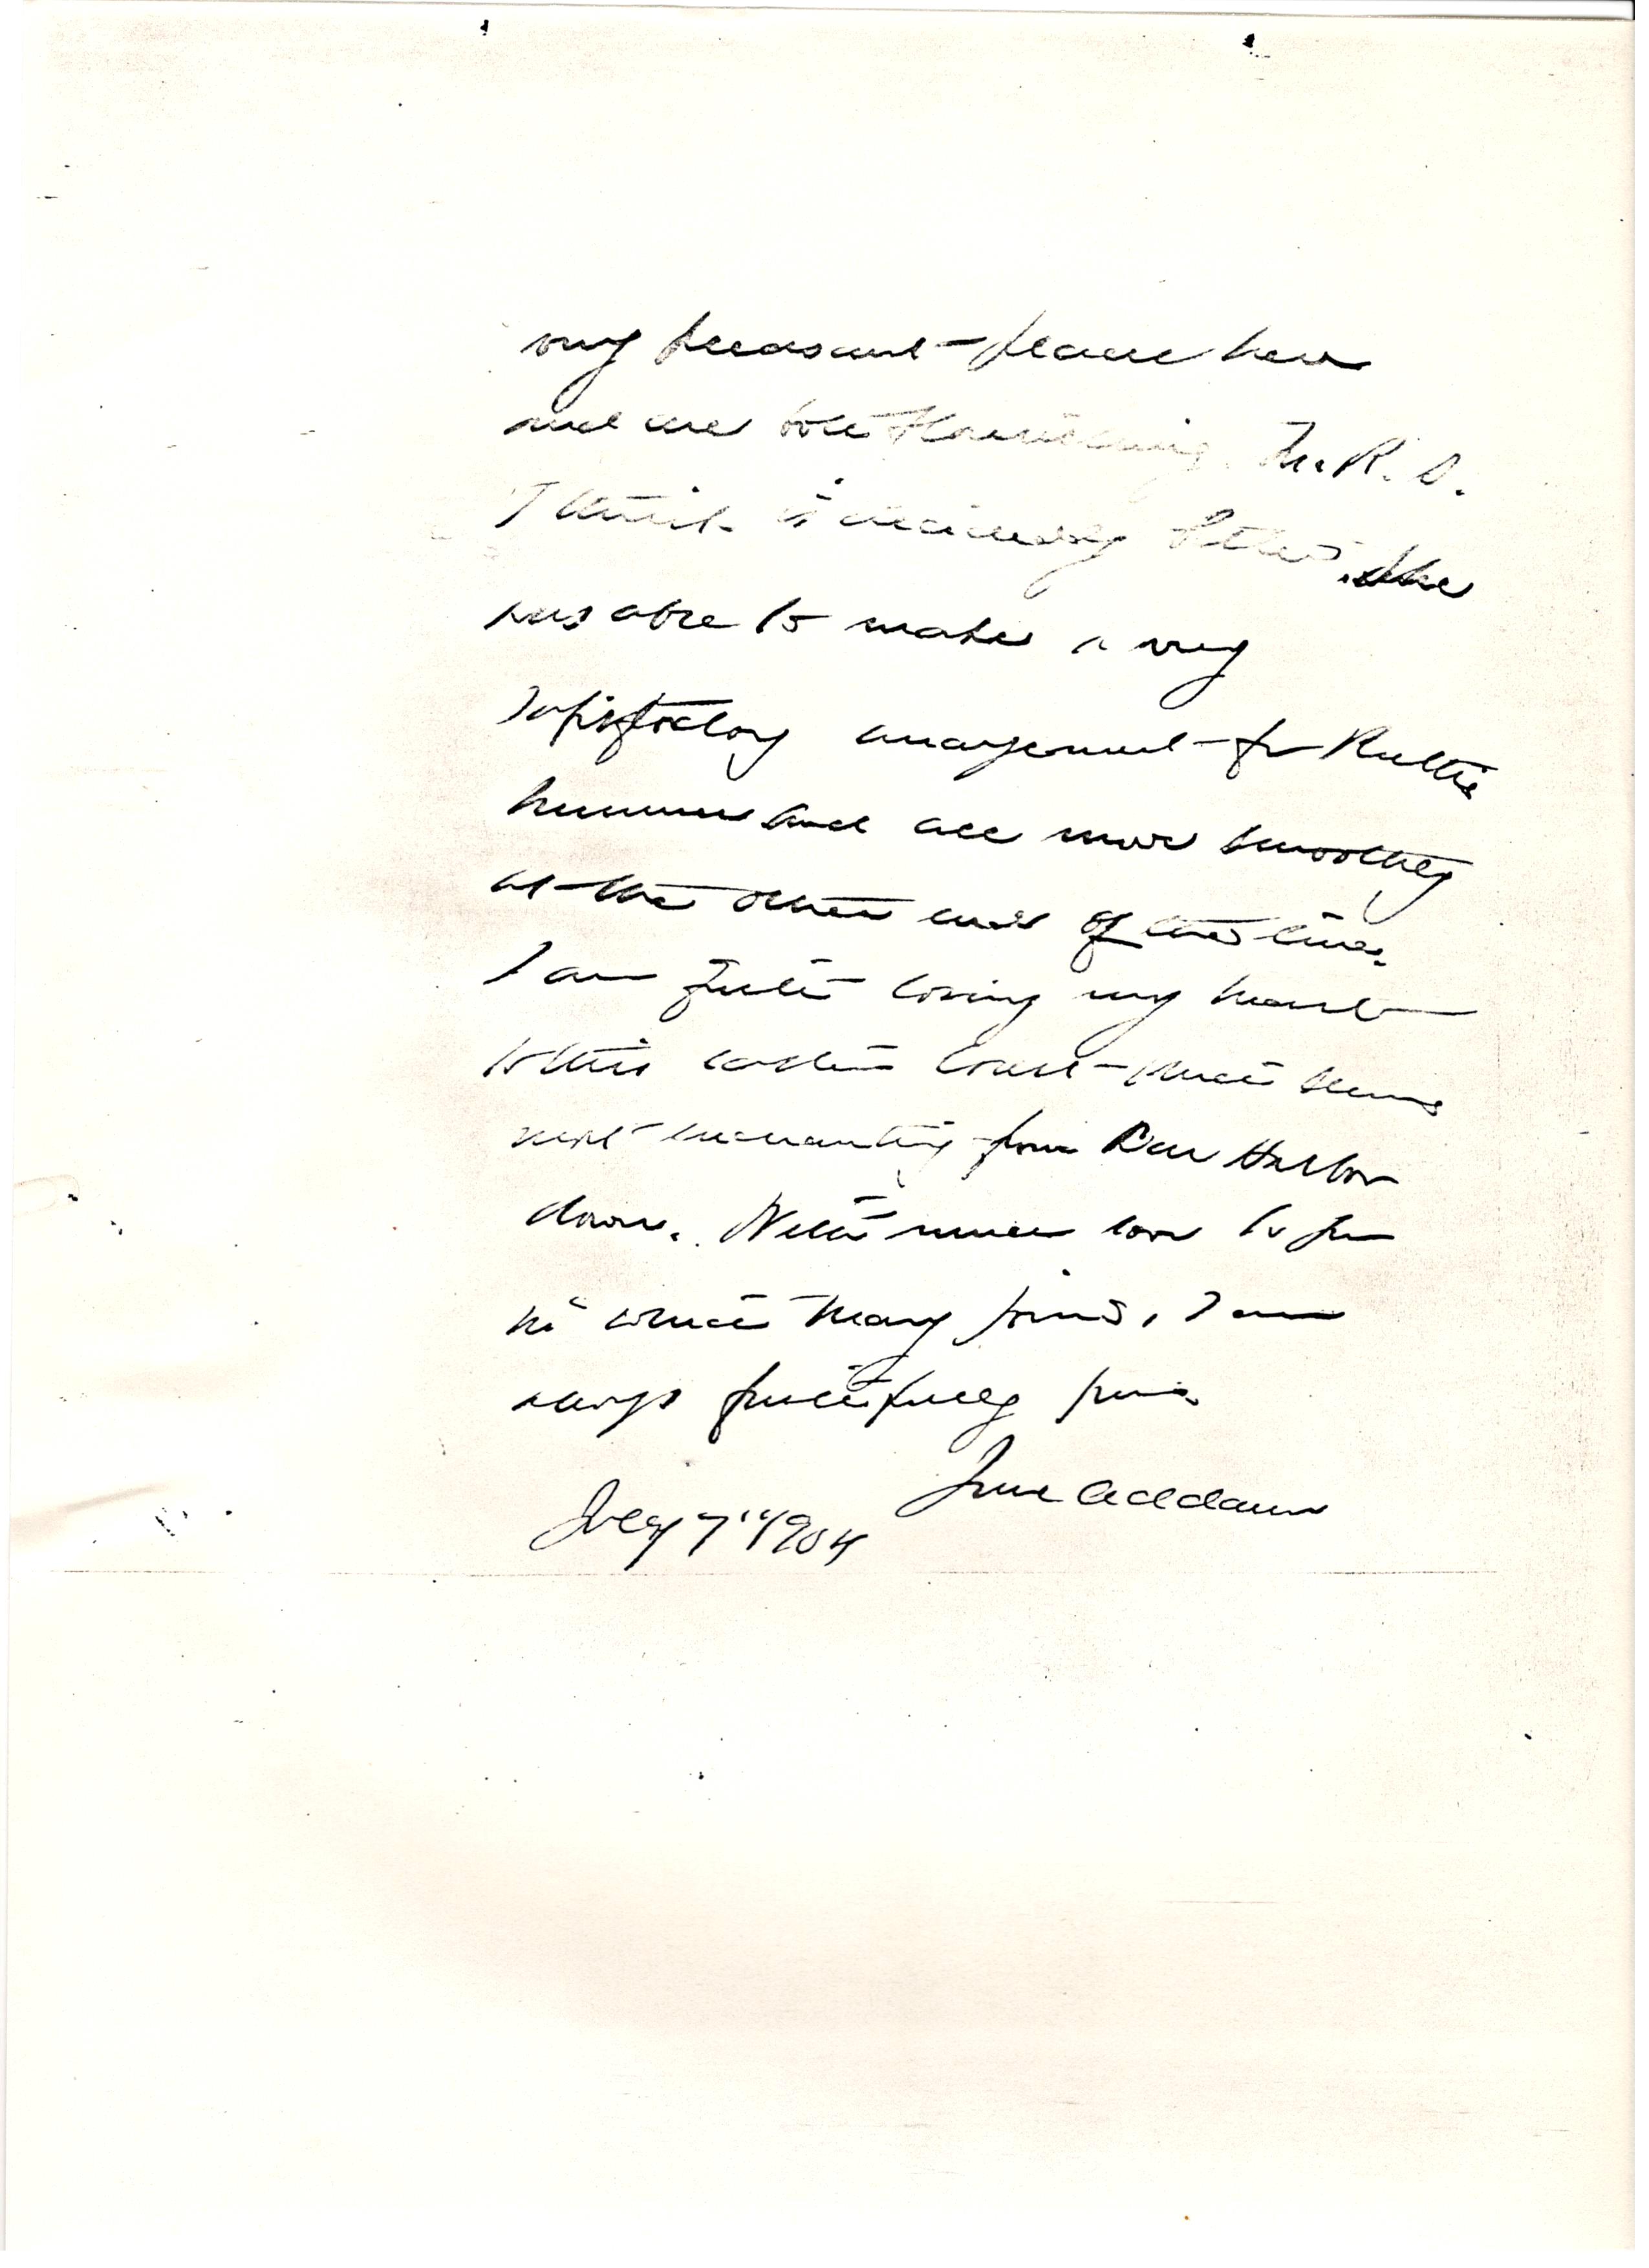 very pleasant place here
and are both flourishing. M. R. S.
I think is decidedly better. She
was able to make a very
satisfactory arrangement for
summer and all move smoothly
at the other end of the line.
I am quite losing my heart
to this eastern coast which seems
most enchanting from Bar Harbor
down. With much love to you
in which Mary joins, I am
always faithfully yours
Jane Addams
July 7" 1904